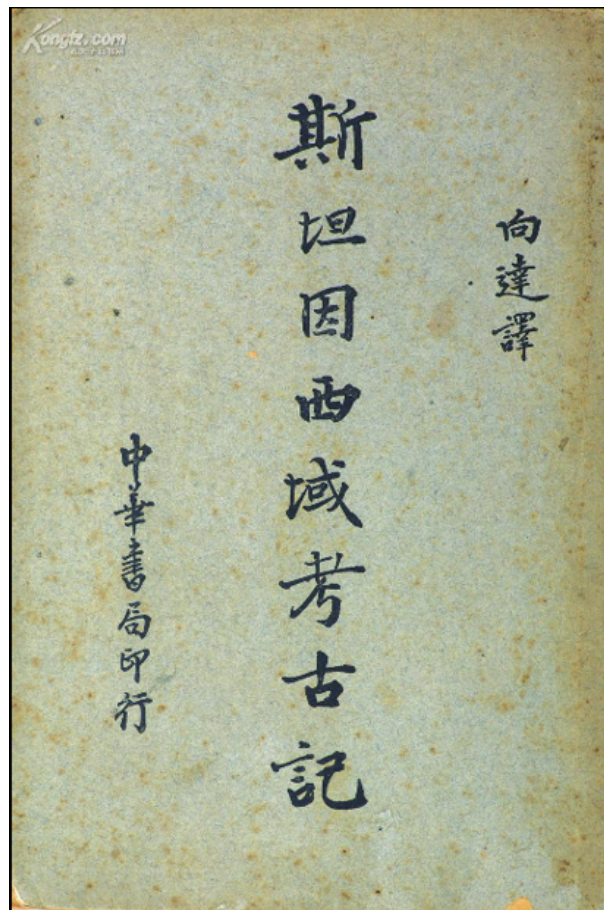 Kongfz.com
向達譯
斯坦因西域考古記
中華書局印行